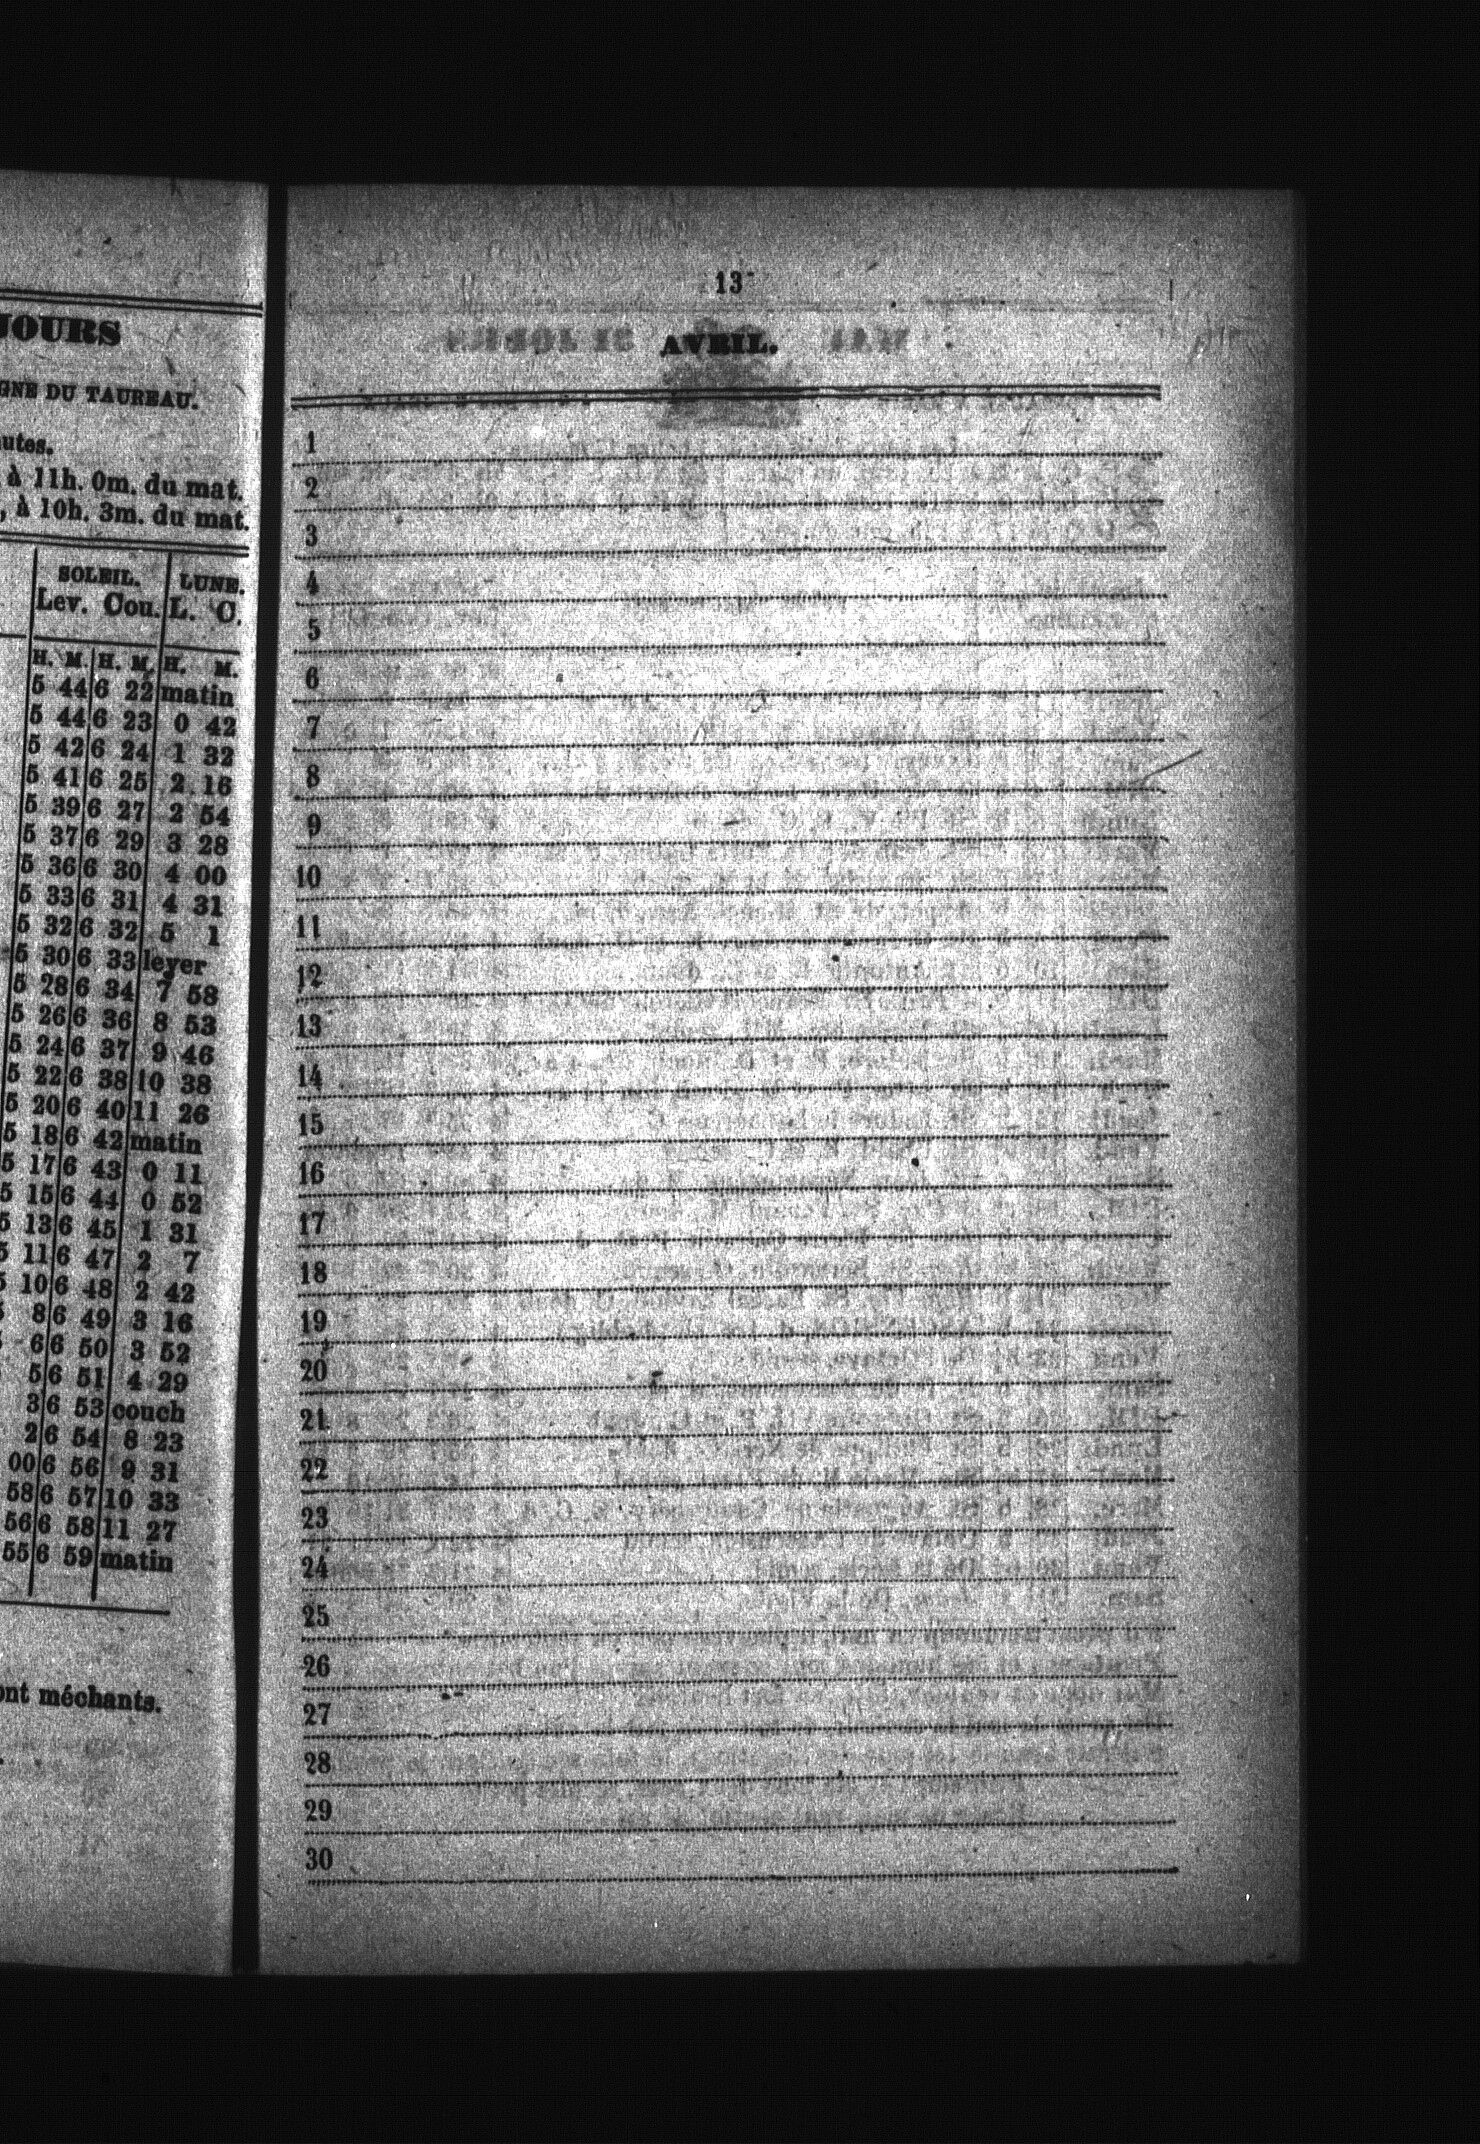 JOURS
GNE DU TAUREAU.
nutes.
à 11h. 0m. du mat.
, à 10h. 3m. du mat.
SOLEIL. LUNE.
Lev. Cou. L. C.
H. M. H. M. H. M.
5 44 6 22 matin
5 44 6 23 0 42
5 42 6 24 1 32
5 41 6 25 2 16
5 39 6 27 2 54
5 37 6 29 3 28
5 36 6 30 4 00
5 33 6 31 4 31
5 32 6 32 5 1
5 30 6 33 lever
5 28 6 34 7 58
5 26 6 36 8 53
5 24 6 37 9 46
5 22 6 38 10 38
5 20 6 40 11 26
5 18 6 42 matin
5 17 6 43 0 11
5 15 6 44 0 52
5 13 6 45 1 31
5 11 6 47 2 7
5 10 6 48 2 42
8 6 49 3 16
6 6 50 3 52
5 6 51 4 29
3 6 53 couch
2 6 54 8 23
00 6 56 9 31
58 6 57 10 33
56 6 58 11 27
55 6 59 matin
ont méchants.
13
AVRIL.
1
2
3
4
5
6
7
8
9
10
11
12
13
14
15
16
17
18
19
20
21
22
23
24
25
26
27
28
29
30